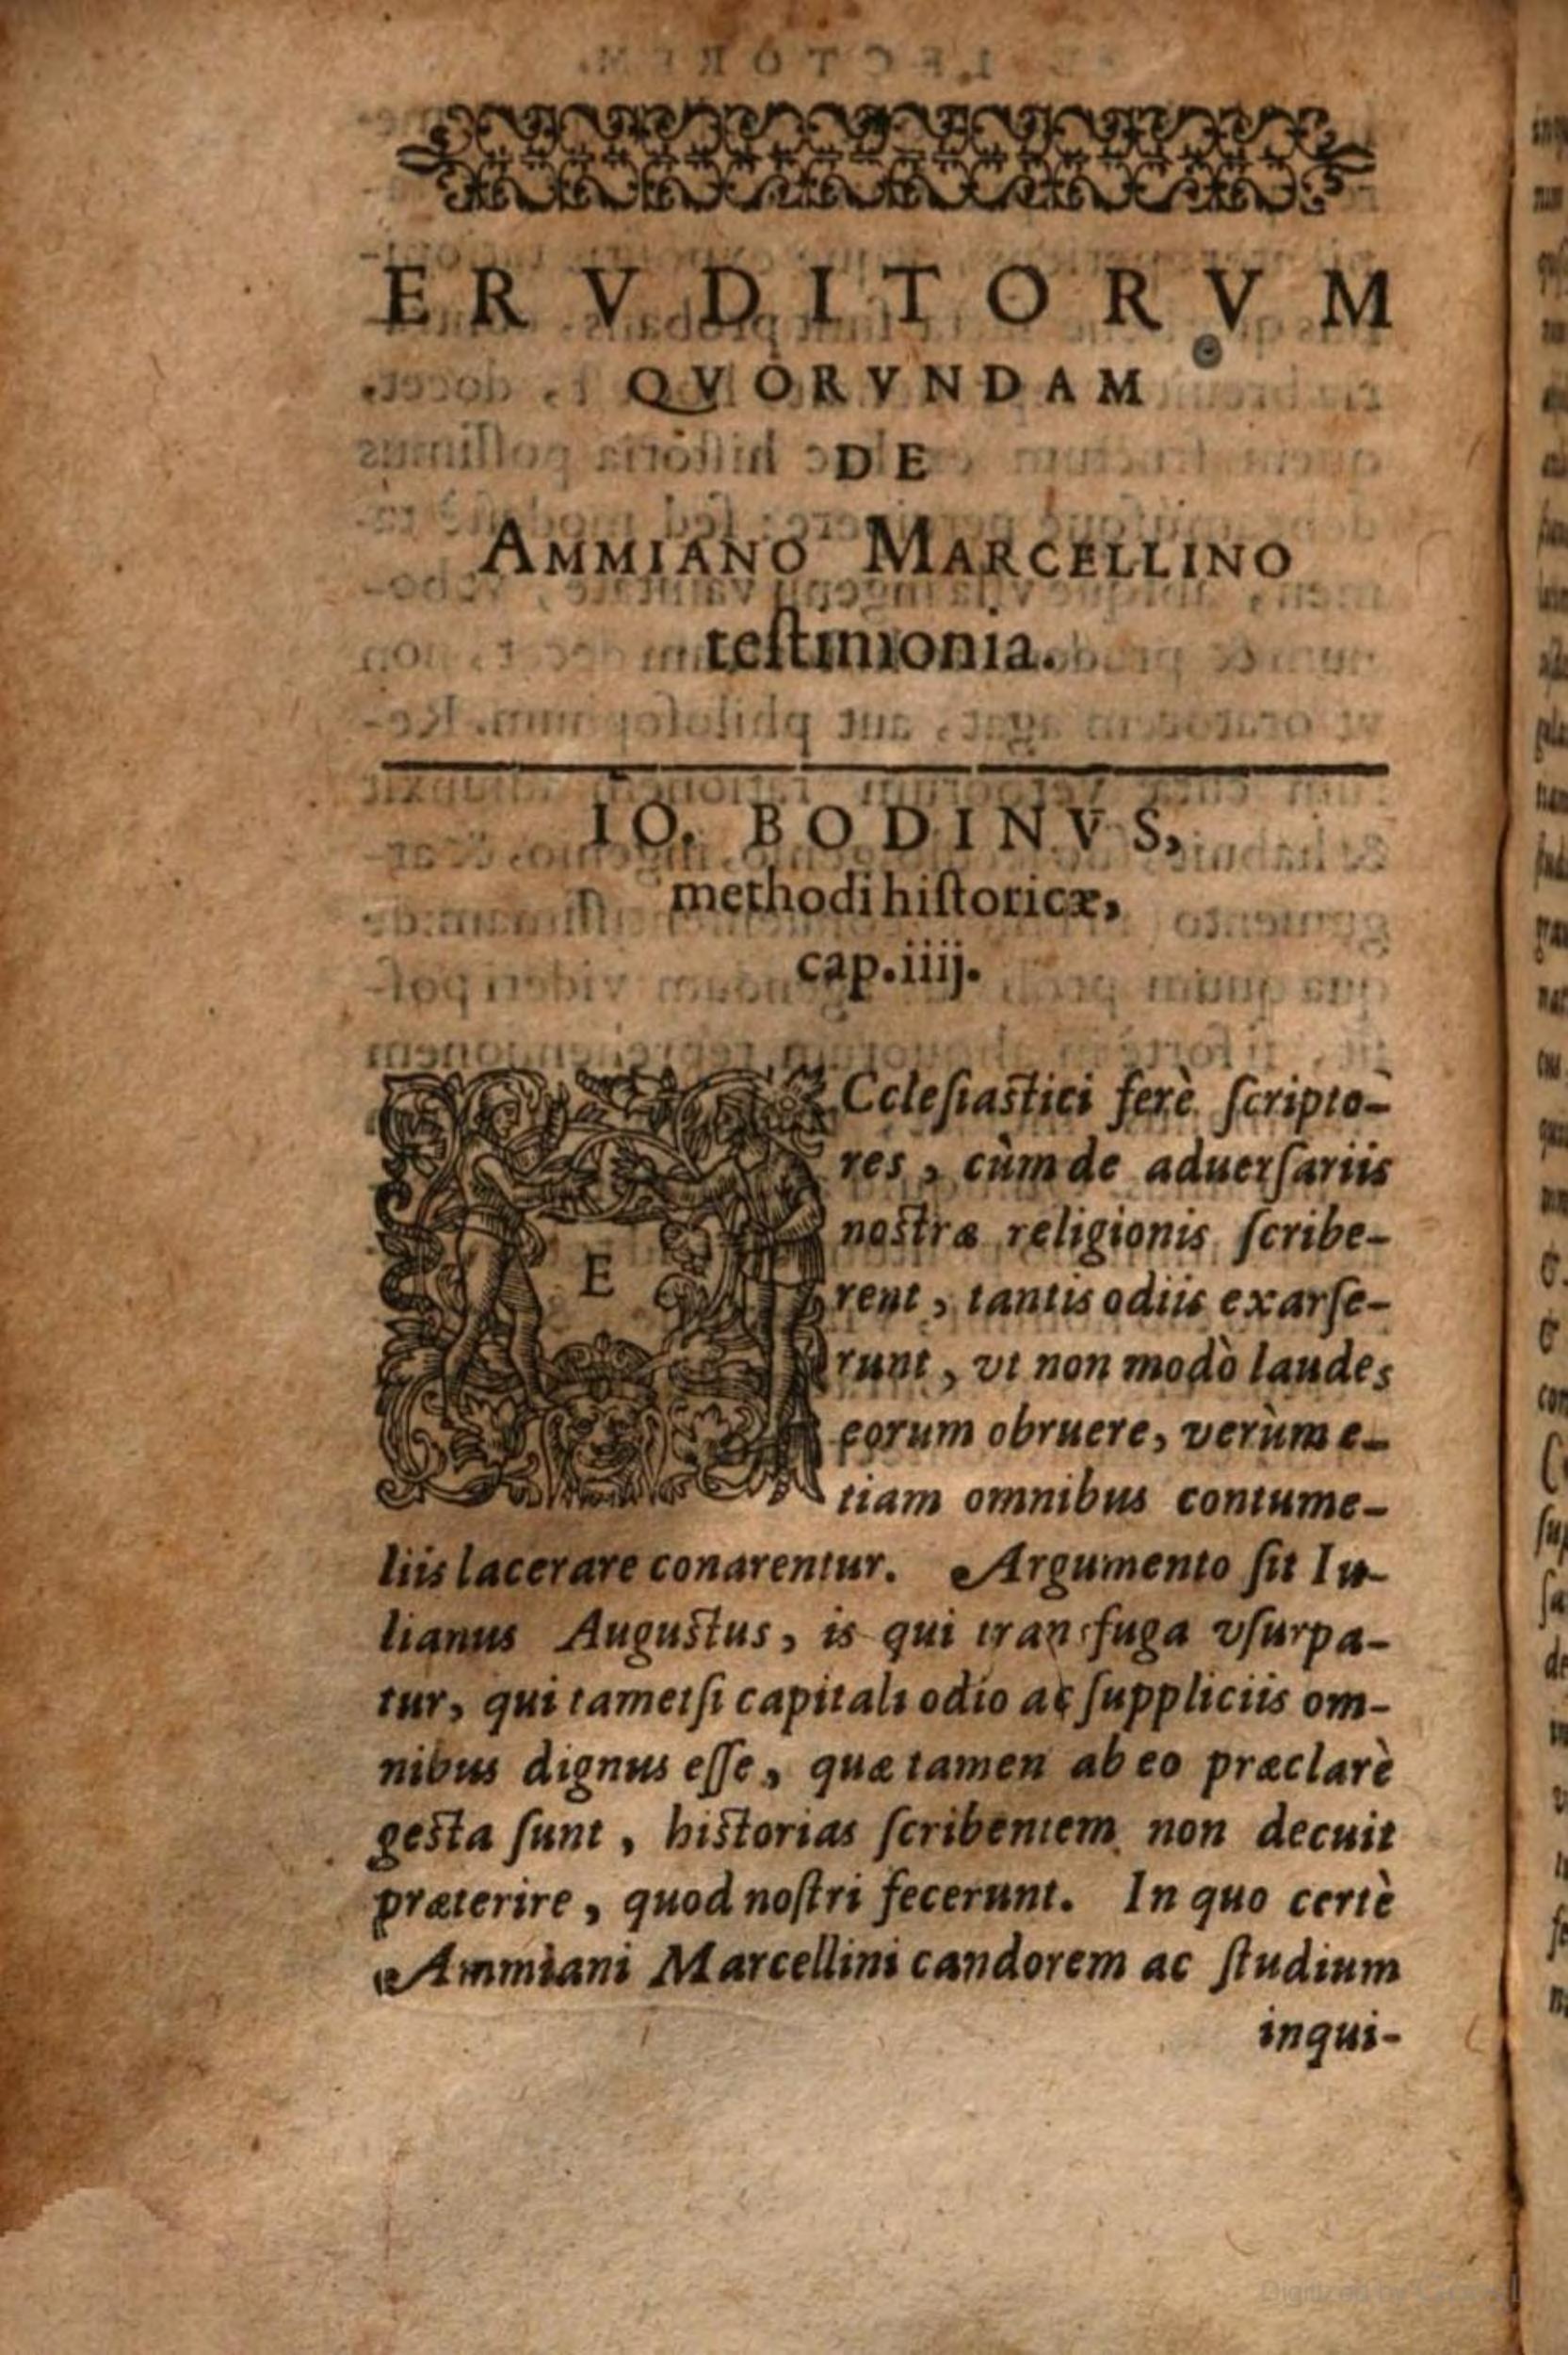 ERVDITORVM
QVORVNDAM
DE
AMMIANO MARCELLINO
teſtimonia.
IO. BODINVS,
methodi hiſtoricæ,
cap. iiij.
ECcleſiaſtici ferè ſcripto-
res, cùm de aduerſariis
noſtræ religionis ſcribe-
rent, tantis odiis exarſe-
runt, vt non modò laudes
eorum obruere, verùm e-
tiam omnibus contume-
liis lacerare conarentur. Argumento ſit Iu-
lianus Auguſtus, is qui tranſfuga vſurpa-
tur, qui tametſi capitali odio ac ſuppliciis om-
nibus dignus eſſe, quæ tamen ab eo præclarè
geſta ſunt, hiſtorias ſcribentem non decuit
præterire, quod noſtri fecerunt. In quo certè
Ammiani Marcellini candorem ac ſtudium
inqui-